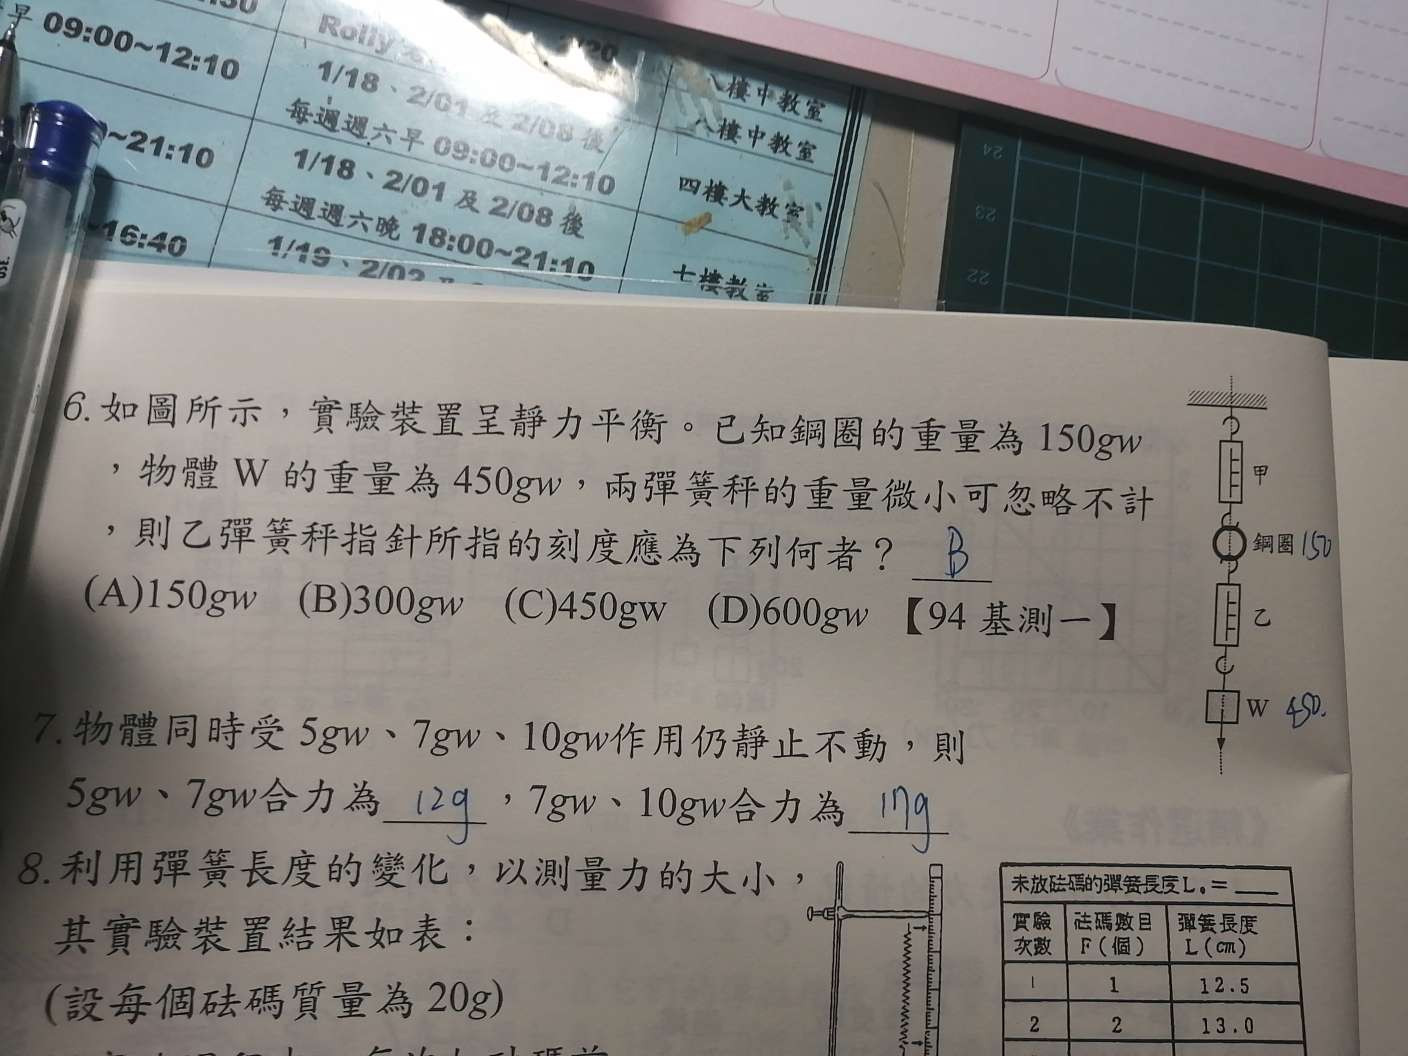 09:00~12:10
Rolly
1/18、2/01 及 2/08 後
每週週六早 09:00~12:10
~21:10
1/18、2/01 及 2/08 後
每週週六晚 18:00~21:10
~16:40
1/19、2/02
八樓中教室
八樓中教室
四樓大教室
七樓教室
24
23
22
6. 如圖所示，實驗裝置呈靜力平衡。已知鋼圈的重量為 150gw
，物體 W 的重量為 450gw，兩彈簧秤的重量微小可忽略不計
，則乙彈簧秤指針所指的刻度應為下列何者？ B
(A)150gw (B)300gw (C)450gw (D)600gw 【94 基測一】
甲
鋼圈 150
乙
W 450.
7. 物體同時受 5gw、7gw、10gw作用仍靜止不動，則
5gw、7gw合力為 12g ，7gw、10gw合力為 17g
8. 利用彈簧長度的變化，以測量力的大小，
其實驗裝置結果如表：
(設每個砝碼質量為 20g)
未放砝碼的彈簧長度L。=____
實驗次數 砝碼數目F(個) 彈簧長度L(cm)
1 1 12.5
2 2 13.0